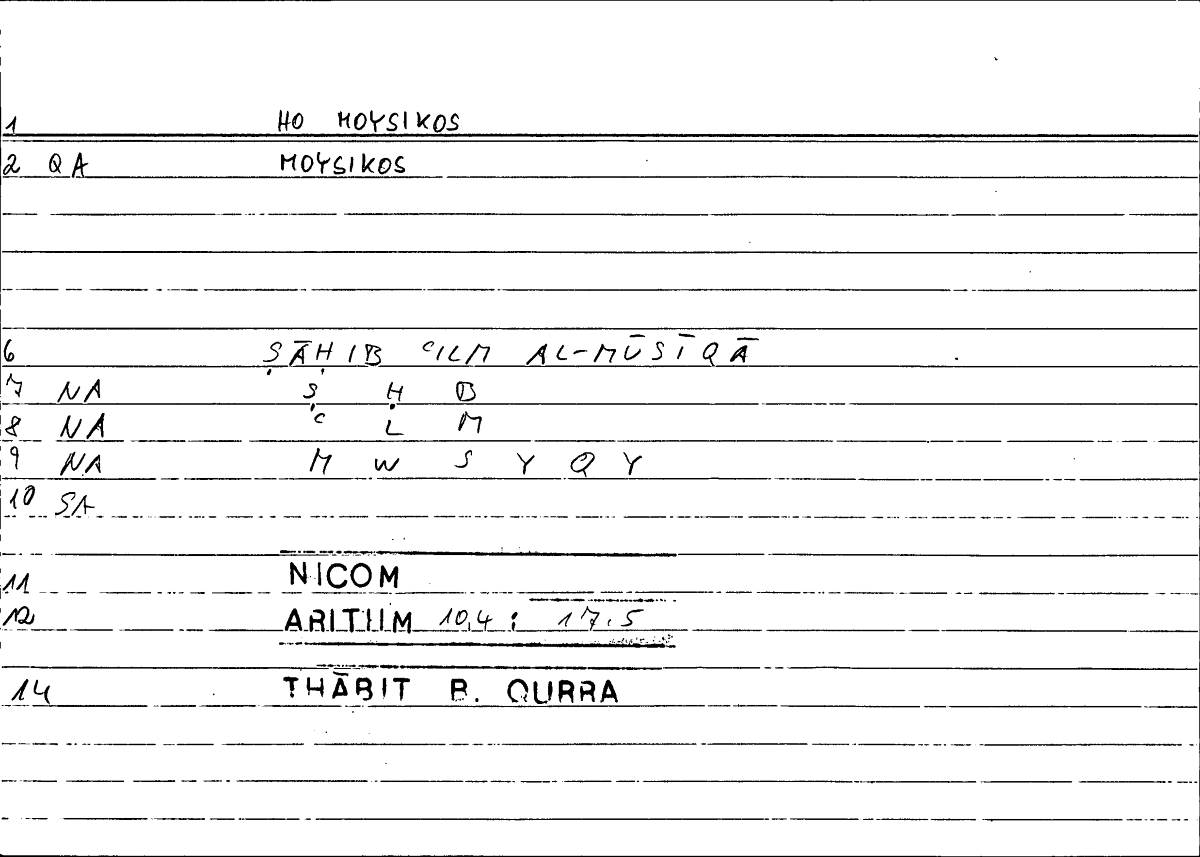 1 HO MOYSIKOS
2 QA MOYSIKOS
6 ṢĀḤIB ᶜILM AL-MŪSĪQĀ
7 NA Ṣ Ḥ B
8 NA ᶜ L M
9 NA M W S Y Q Y
10 SA
11 NICOM
12 ARITHM 10,4 ; 17.5
14 THĀBIT B. QURRA